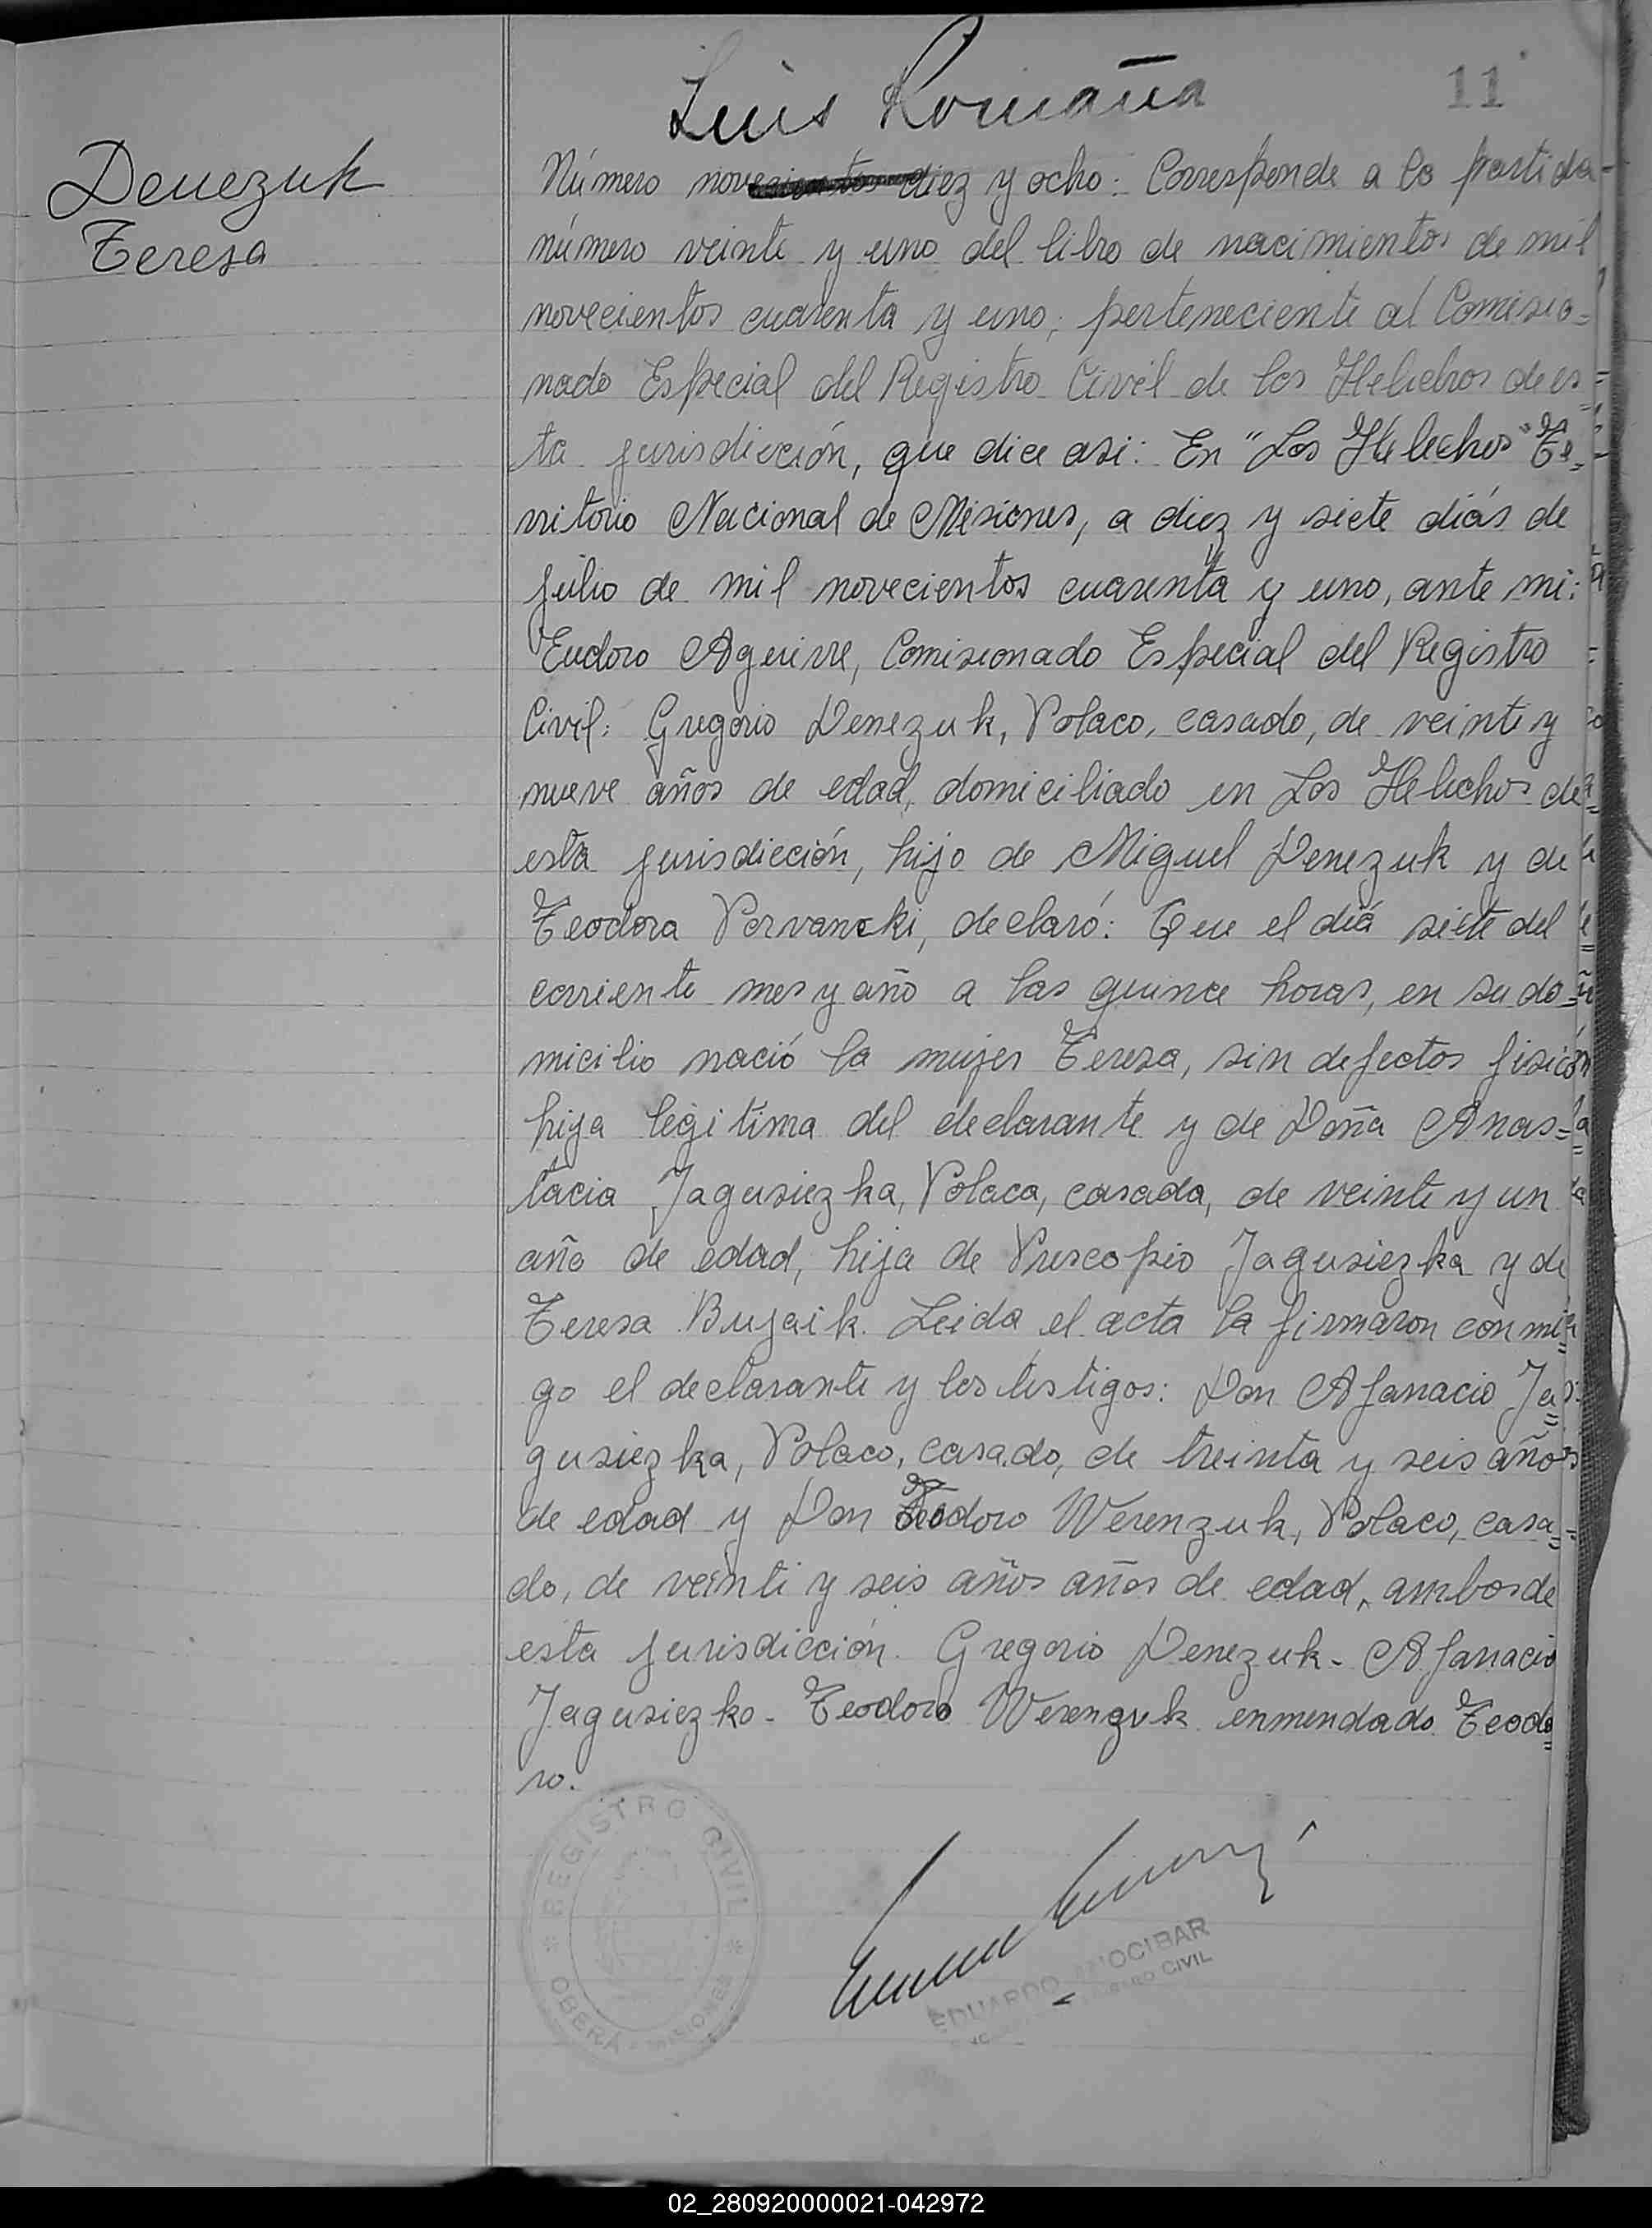 Luis Romaña
11
Denezuk
Teresa
Número diez y ocho: Corresponde a la partida
número veinte y uno del libro de nacimientos de mil
novecientos cuarenta y uno; perteneciente al Comisio=
nado Especial del Registro Civil de los Helechos de es=
ta jurisdicción, que dice asi: En "Los Helechos" Te=
rritorio Nacional de Misiones, a diez y siete diás de
julio de mil novecientos cuarenta y uno, ante mi:
Eudoro Aguirre, Comisionado Especial del Registro
Civil: Gregorio Denezuk, Polaco, casado, de veinte y
nueve años de edad, domiciliado en Los Helechos de
esta jurisdicción, hijo de Miguel Denezuk y de
Teodora Porvancki, declaró: Que el diá siete del
corriente mes y año a las quince horas, en su do=
micilio nació la mujer Teresa, sin defectos fisicos
hija legitima del declarante y de Doña Anas=
tacia Jagusiezka, Polaca, casada, de veinte y un
año de edad, hija de Pruscopio Jagusiezka y de
Teresa Bujaik. Leida el acta la firmaron conmi=
go el declarante y los testigos: Don Afanacio Ja=
gusiezka, Polaco, casado, de treinta y seis años
de edad y Don Teodoro Werenzuk, Polaco, casa=
do, de veinti y seis años años de edad, ambos de
esta jurisdicción. Gregorio Denezuk - Afanacio
Jagusiezko - Teodoro Werenzuk enmendado Teodo=
ro.
REGISTRO CIVIL
OBERÁ - MISIONES
EDUARDO ANOCIBAR
CIVIL
02_280920000021-042972